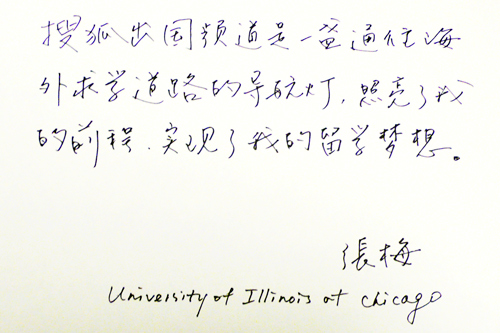 搜狐出国频道是一盏通往海
外求学道路的导航灯，照亮了我
的前程，实现了我的留学梦想。
張梅
University of Illinois at chicago